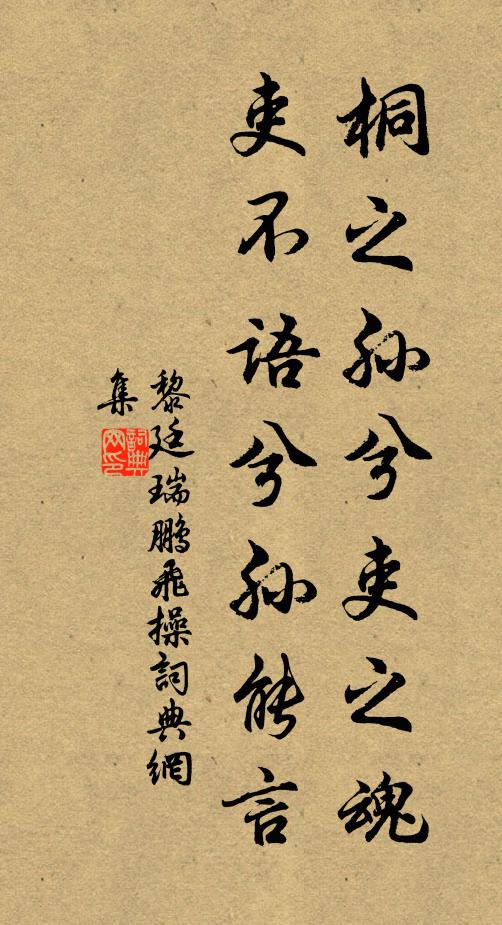 桐之孙兮吏之魂
吏不语兮孙能言
黎廷瑞鹏飛操詞典網
集
詞典網印